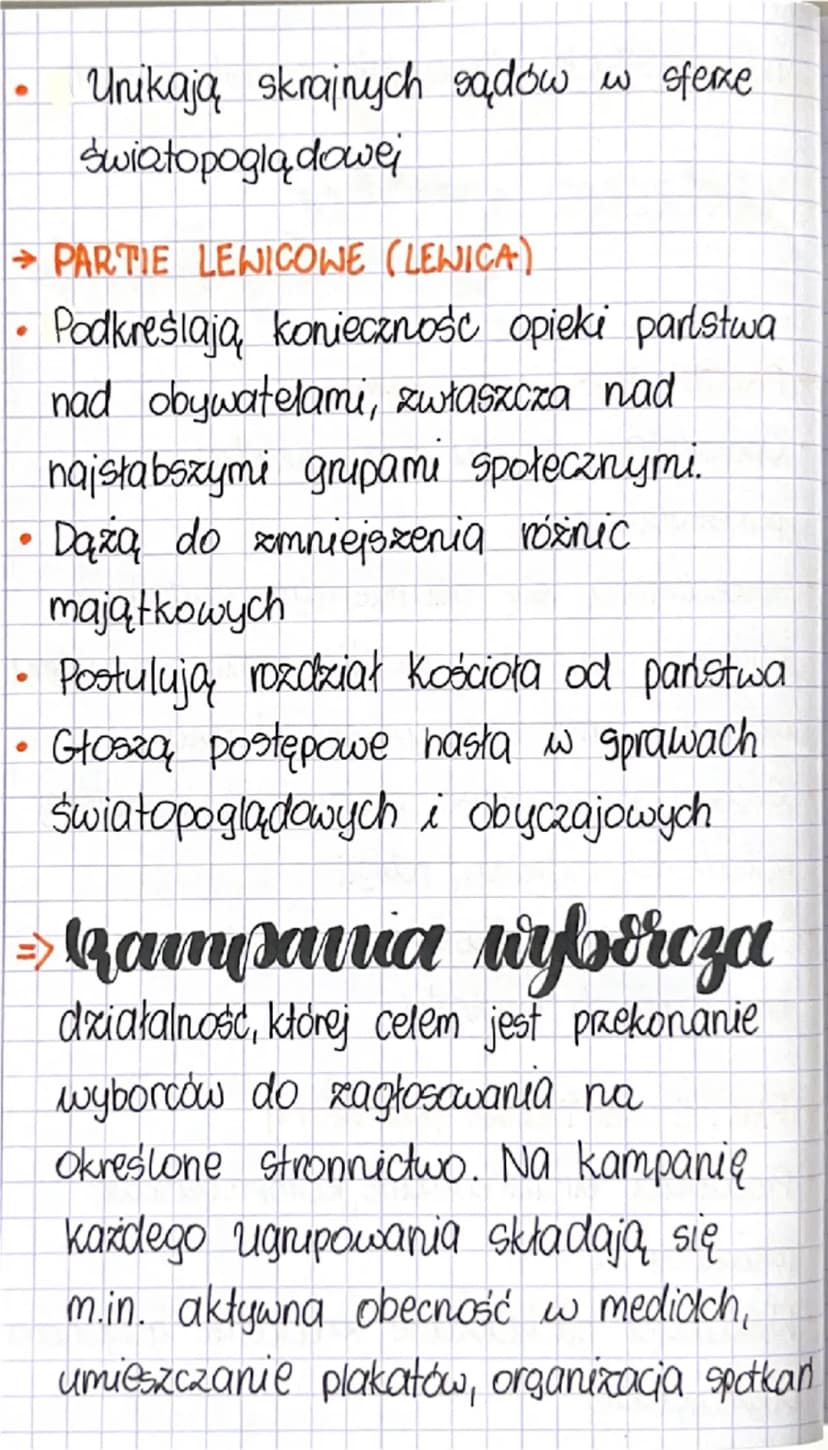 • Unikają skrajnych sądów w sferze
światopoglądowej
→ PARTIE LEWICOWE (LEWICA)
• Podkreślają konieczność opieki państwa
nad obywatelami, zwłaszcza nad
najsłabszymi grupami społecznymi.
• Dążą do zmniejszenia różnic
majątkowych
• Postulują rozdział Kościoła od państwa
• Głoszą postępowe hasła w sprawach
światopoglądowych i obyczajowych
=> kampania wyborcza
działalność, której celem jest przekonanie
wyborców do zagłosowania na
określone stronnictwo. Na kampanię
każdego ugrupowania składają się
m.in. aktywna obecność w mediach,
umieszczanie plakatów, organizacja spotkań